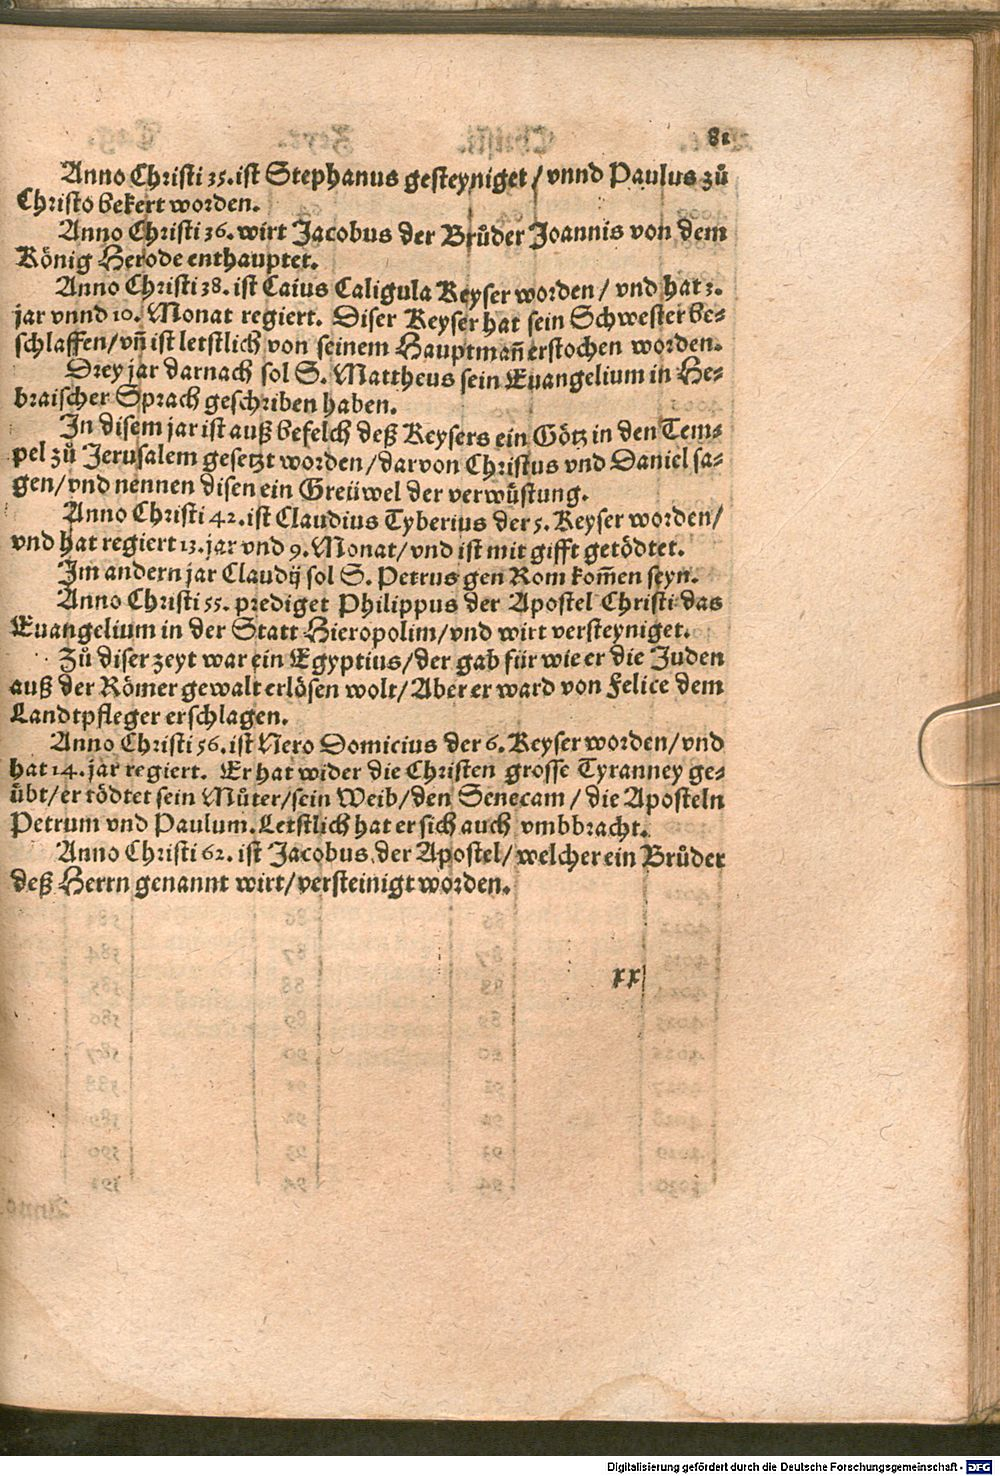 81
Anno Christi 35. ist Stephanus gesteyniget / vnnd Paulus zů
Christo bekert worden.
Anno Christi 36. wirt Jacobus der Brůder Joannis von dem
König Herode enthauptet.
Anno Christi 38. ist Caius Caligula Keyser worden / vnd hat 3.
jar vnnd 10. Monat regiert. Diser Keyser hat sein Schwester be⸗
schlaffen/vn̄ ist letstlich von seinem Hauptman̄ erstochen worden.
Drey jar darnach sol S. Mattheus sein Euangelium in He⸗
braischer Sprach geschriben haben.
In disem jar ist auß befelch deß Keysers ein Götz in den Tem⸗
pel zů Jerusalem gesetzt worden/darvon Christus vnd Daniel sa⸗
gen/vnd nennen disen ein Greüwel der verwůstung.
Anno Christi 42. ist Claudius Tyberius der 5. Keyser worden/
vnd hat regiert 13. jar vnd 9. Monat/vnd ist mit gifft getödtet.
Im andern jar Claudij sol S. Petrus gen Rom kom̄en seyn.
Anno Christi 55. prediget Philippus der Apostel Christi das
Euangelium in der Statt Hieropolim/vnd wirt versteyniget.
Zů diser zeyt war ein Egyptius/der gab für wie er die Juden
auß der Römer gewalt erlösen wolt/Aber er ward von Felice dem
Landtpfleger erschlagen.
Anno Christi 56. ist Nero Domicius der 6. Keyser worden/vnd
hat 14. jar regiert. Er hat wider die Christen grosse Tyranney ge⸗
übt/er tödtet sein Můter/sein Weib/den Senecam / die Aposteln
Petrum vnd Paulum. Letstlich hat er sich auch vmbbracht.
Anno Christi 62. ist Jacobus der Apostel/welcher ein Brůder
deß Herrn genannt wirt/versteinigt worden.
xx
Digitalisierung gefördert durch die Deutsche Forschungsgemeinschaft - DFG